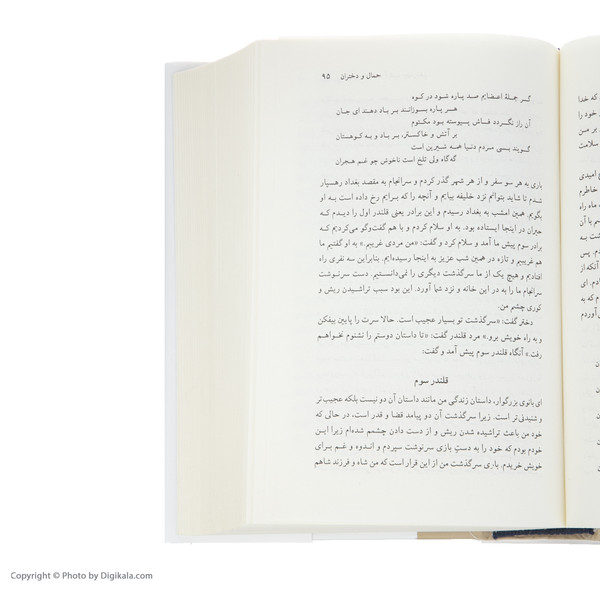 حمال و دختران ۹۵
گر جملهٔ اعضایم صد پاره شود در کوه
هر پاره بسوزانند بر باد دهند ای جان
آن راز نگردد فاش پیوسته بود مکتوم
بر آتش و خاکستر، بر باد و به کوهستان
گویند بسی مردم دنیا همه شیرین است
گه‌گاه ولی تلخ است ناخوش چو غم هجران
باری به هر سو سفر و از هر شهر گذر کردم و سرانجام به مقصد بغداد رهسپار
شدم تا شاید بتوانم نزد خلیفه بیایم و آنچه را که برایم رخ داده است به او
بگویم. همین امشب به بغداد رسیدم و این برادر یعنی قلندر اول را دیدم که
حیران در اینجا ایستاده بود. به او سلام کردم و با هم گفت‌وگو می‌کردیم که
برادر سوم پیش ما آمد و سلام کرد و گفت: «من مردی غریبم.» به او گفتیم ما
هم غریبیم و تازه در همین شب عزیز به اینجا رسیده‌ایم. بنابراین سه نفری راه
افتادیم و هیچ یک از ما سرگذشت دیگری را نمی‌دانستیم. دست سرنوشت
سرانجام ما را به در این خانه و نزد شما آورد. این بود سبب تراشیدن ریش و
کوری چشم من.
دختر گفت: «سرگذشت تو بسیار عجیب است. حالا سرت را پایین بیفکن
و به راه خویش برو.» مرد قلندر گفت: «تا داستان دوستم را نشنوم نخواهم
رفت.» آنگاه قلندر سوم پیش آمد و گفت:
قلندر سوم
ای بانوی بزرگوار، داستان زندگی من مانند داستان آن دو نیست بلکه عجیب‌تر
و شنیدنی‌تر است. زیرا سرگذشت آن دو پیامد قضا و قدر است، در حالی که
خود من باعث تراشیده شدن ریش و از دست دادن چشمم شده‌ام زیرا این
خودم بودم که خود را به دستِ بازی سرنوشت سپردم و اندوه و غم برای
خویش خریدم. باری سرگذشت من از این قرار است که من شاه و فرزند شاهم
Copyright © Photo by Digikala.com